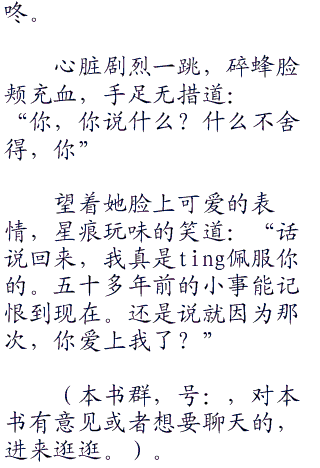 咚。
心脏剧烈一跳，碎蜂脸
颊充血，手足无措道：
“你，你说什么？什么不舍
得，你”
望着她脸上可爱的表
情，星痕玩味的笑道：“话
说回来，我真是ting佩服你
的。五十多年前的小事能记
恨到现在。还是说就因为那
次，你爱上我了？”
（本书群，号：，对本
书有意见或者想要聊天的，
进来逛逛。）。